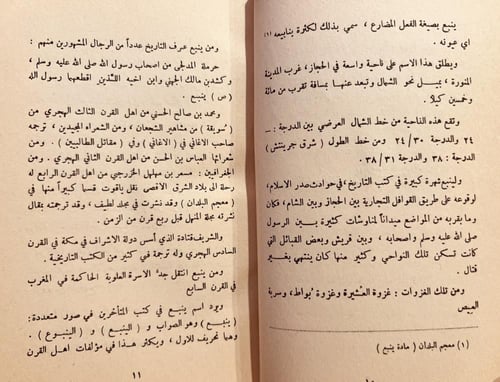 ينبع بصيغة الفعل المضارع ، سمي بذلك لكثرة ينابيعه (١)
اي عيونه .
ويطلق هذا الاسم على ناحية واسعة في الحجاز ، غرب المدينة
المنورة ، بميل نحو الشمال وتبعد عنها بمسافة تقرب من مائة
وخمسين كيلا .
وتقع هذه الناحية من خط الشمال العرضي بين الدرجة : ــ
٢٤ والدرجة ٢٤/٣٠ ومن خط الطول ( شرق جرينتش )
الدرجة : ٣٨ والدرجة ٣٨/٣١ .
ولينبع شهرة كبيرة في كتب التاريخ ، في حوادث صدر الاسلام ،
لوقوعه على طريق القوافل التجارية بين الحجاز وبين الشام ، فكان
وما بقربه من المواضع ميداناً لمناوشات كثيرة بين الرسول
صلى الله عليه وسلم واصحابه ، وبين قريش وبعض القبائل التي
كانت تسكن تلك النواحي وكثير منها كان ينتهي بغير
قتال .
ومن تلك الغزوات : غزوة العشيرة وغزوة بواط ، وسرية
العيص
(١) معجم البلدان ( مادة ينبع )
١٠
ومن ينبع عرف التاريخ عدداً من الرجال المشهورين منهم :
حرملة المدلجى من اصحاب رسول الله صلى الله عليه وسلم ،
وكشدبن مالك الجهني وابن اخيه اللذين اقطعهما رسول الله
( ص ) ينبع .
ومحمد بن صالح الحسني من اهل القرن الثالث الهجري من
( سويقة ) من مشاهير الشجعان ، ومن الشعراء المجيدين ، ترجمه
صاحب الاغاني في ( الاغاني ) وفي ( مقاتل الطالبيين ) . ومن
شعرائها العباس بن الحسن من اهل القرن الثاني الهجري . ومن
الجغرافيين : مسعر بن مهلهل الخزرجي من اهل القرن الرابع له
رحلة الى بلاد الشرق الاقصى نقل ياقوت قسماً كبيراً منها في
( معجم البلدان ) وقد نشرت في مجلد لطيف ، وقد ترجمته بمقال
نشرته مجلة المنهل قبل ربع قرن من الزمن .
والشريف قتادة الذي أسس دولة الاشراف في مكة في القرن
السادس الهجري وله ترجمة في كثير من الكتب التاريخية .
ومن ينبع انتقل جد الاسرة العلوية الحاكمة في المغرب
في القرن السابع
ويرد اسم ينبع في كتب المتأخرين في صور متعددة :
( ينبع ) وهو الصواب و ( الينبع ) و ( الينبوع ) .
وهما تحريف للاول ، ويكثر هذا في مؤلفات اهل القرن
١١